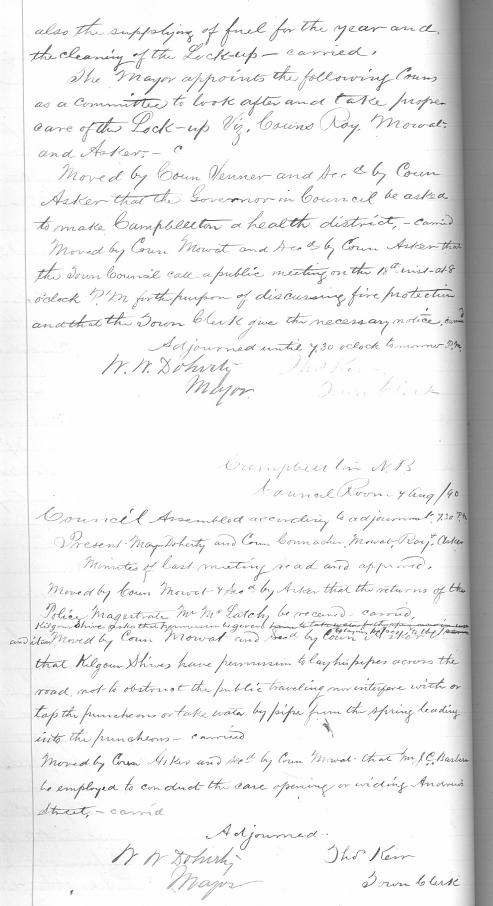 also the supplying of fuel for the year and
the cleaning of the Lock-up — carried.
The Mayor appoints the following Couns
as a committee to look after and take proper
care of the Lock-up Viz, Couns Roy, Mowat
and Asker. —
Moved by Coun Venner and Secd by Coun
Asker that the Governor in Council be asked
to make Campbellton a health district, — carrid
Moved by Coun Mowat and Secd by Coun Asker that
the Town Council call a public meeting on the 18th inst at 8
oclock P.M for th purpon of discussing fire protection
and that the Town Clerk give the necessary notice, carrid
Adjourned until 7.30 oclock tomorrow P.M.
W. W. Doherty Thos Kerr
Mayor Town Clerk
Campbellton N.B
Council Room 7 Aug /90
Council Assembled according to adjournment, 7.30 P.M
Present May Doherty and Coun Connacher, Mowat, Roy & Asker
Minutes of last meeting read and approved.
Moved by Coun Mowat & Secd by Asker that the returns of the
Police Magistrate Mr McLatchy be received — carried
Kilgour Shives asks that permission be given
Moved by Coun Mowat and Secd by Coun Asker
that Kilgour Shives have permission to lay his pipes across the
road, not to obstruct the public traveling nor interfere with or
tap the puncheons or take water by pipe from the spring leading
into the puncheons — carried
Moved by Coun Asker and Secd by Coun Mowat that Mr J.C. Barberie
be employed to conduct the case opening or widing Andrew
Street, — carrid
Adjourned.
W W Doherty Thos Kerr
Mayor Town Clerk